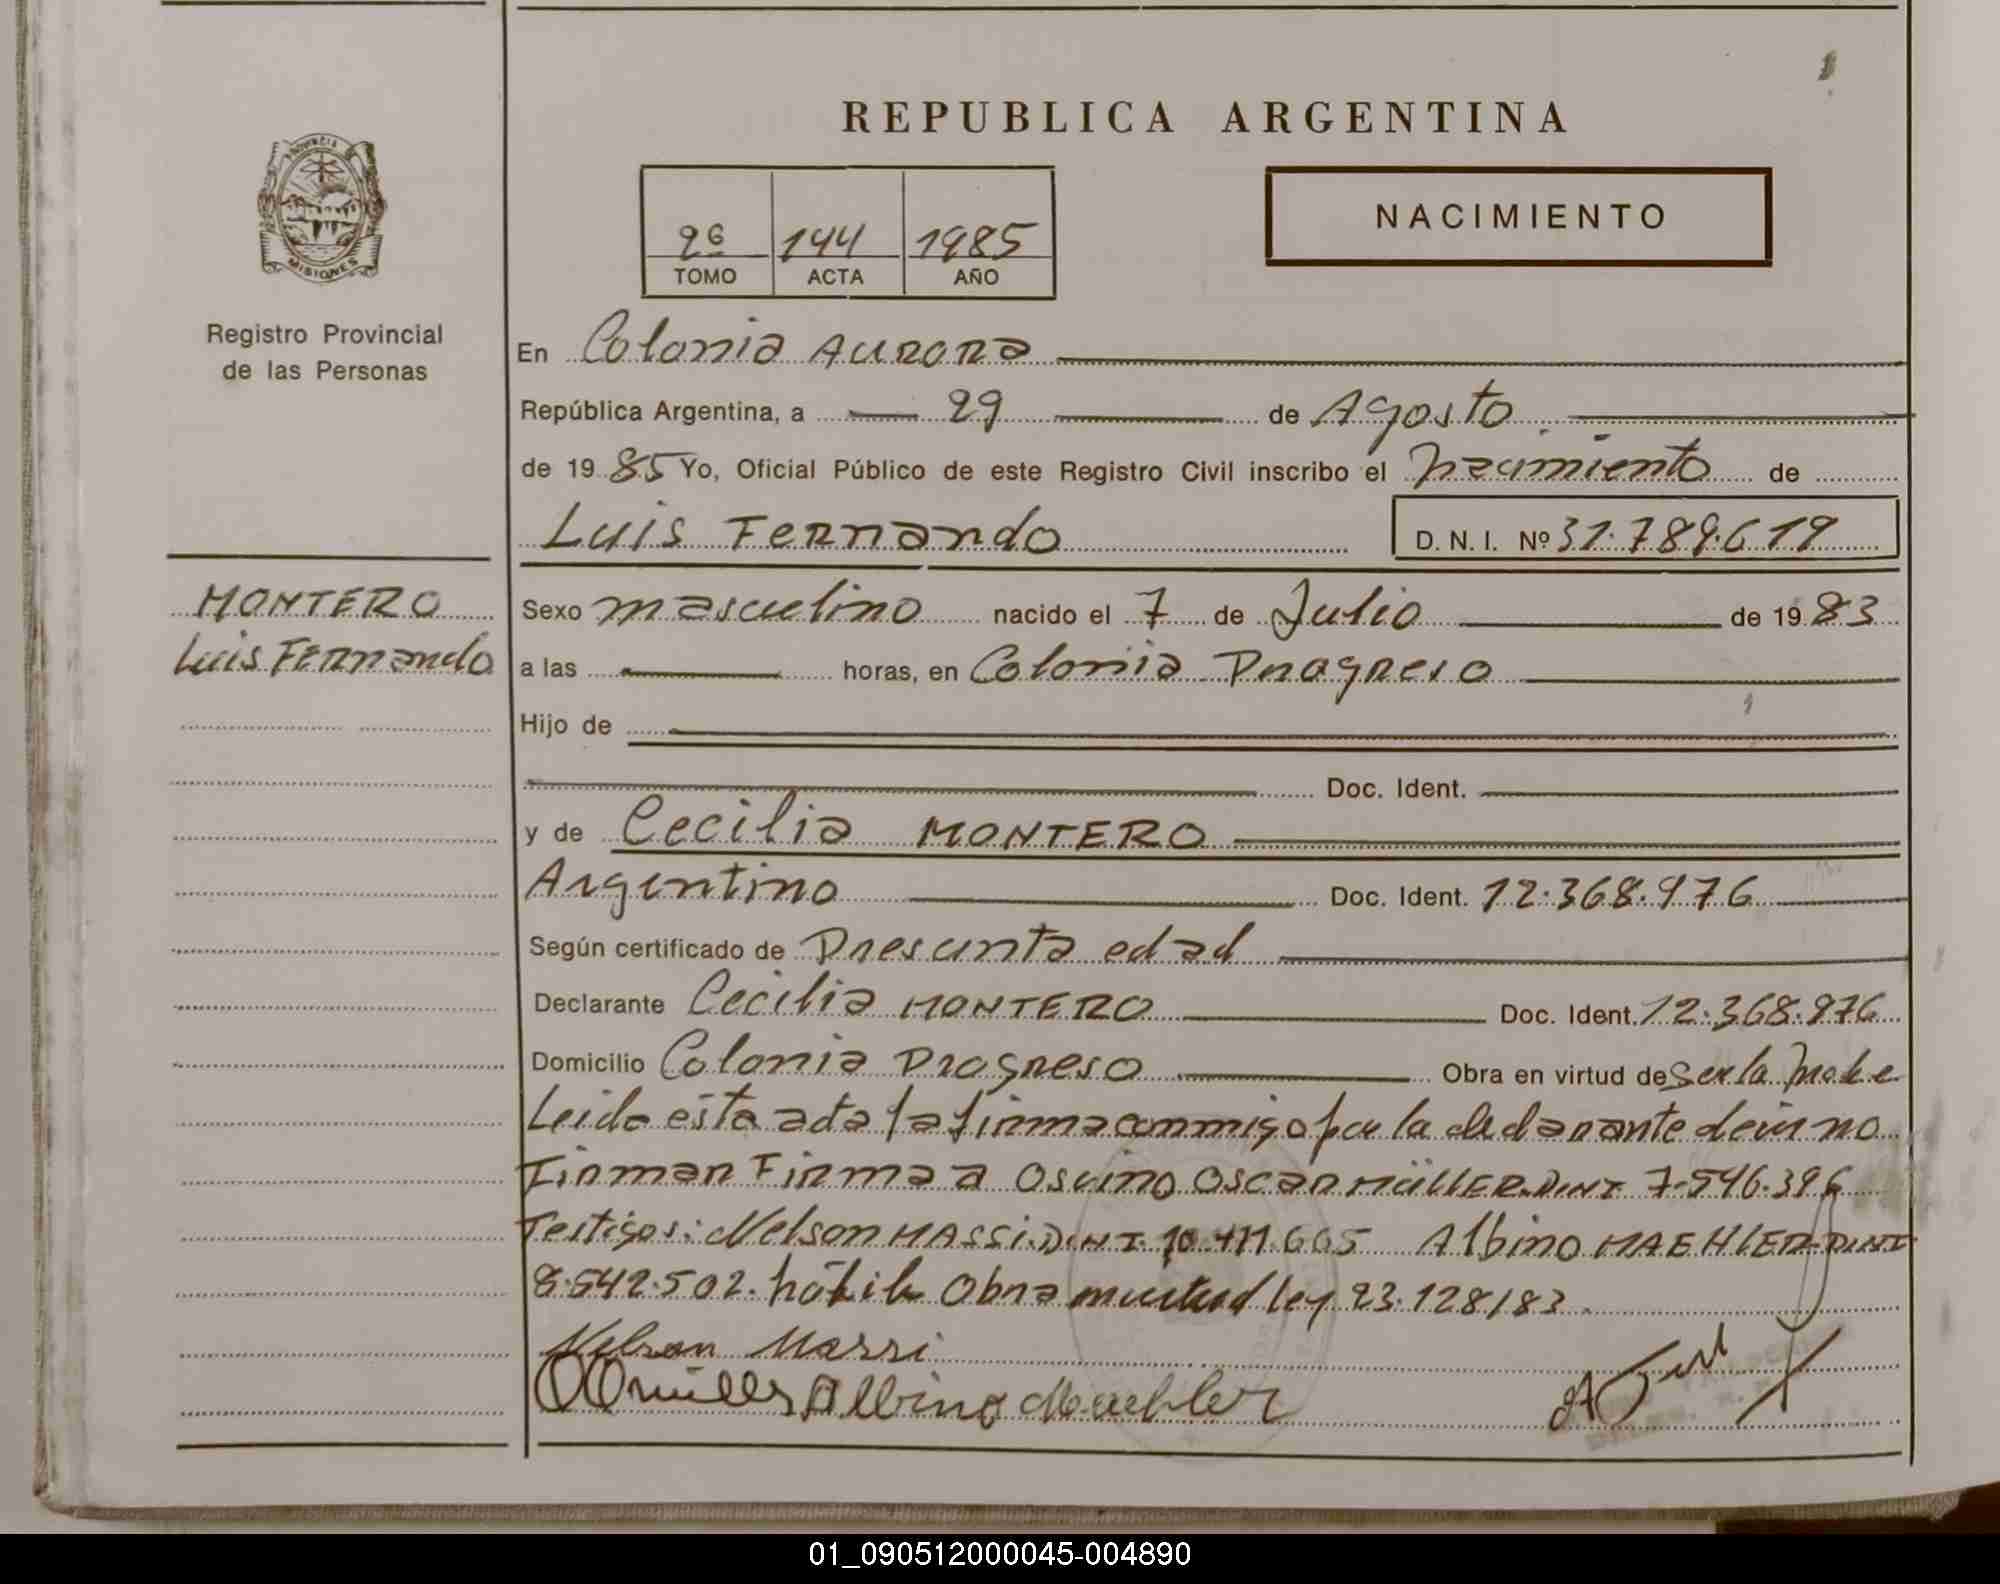 REPUBLICA ARGENTINA
PROVINCIA DE
MISIONES
Registro Provincial
de las Personas
2º 144 1985
TOMO ACTA AÑO
NACIMIENTO
En Colonia Aurora
República Argentina, a 29 de Agosto
de 1985 Yo, Oficial Público de este Registro Civil inscribo el nacimiento de
Luis Fernando D. N. I. Nº 31.789.619
MONTERO
Luis Fernando
Sexo masculino nacido el 7 de Julio de 1983
a las horas, en Colonia Progreso
Hijo de
Doc. Ident.
y de Cecilia MONTERO
Argentino Doc. Ident. 12.368.976
Según certificado de Presunta edad
Declarante Cecilia MONTERO Doc. Ident. 12.368.976
Domicilio Colonia Progreso Obra en virtud de Ser la Madre
Leida esta acta la firma conmigo por la declarante decir no
Firmar Firma a Osvino Oscar MÜLLER DNI 7.546.396
Testigos: Nelson MASSI DNI 10.411.665 Albino MAEHLER DNI
8.542.502. hábil Obra ley 23.128/83
Nelson Massi
OOmüller Albino Maehler
01_090512000045-004890